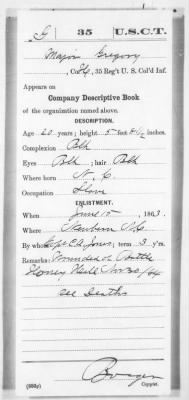 G 35 U.S.C.T.
Major Gregory
, Co. G, 35 Reg't U. S. Col'd Inf.
Appears on
Company Descriptive Book
of the organization named above.
DESCRIPTION.
Age 20 years; height 5 feet 8½ inches.
Complexion Blk
Eyes Blk ; hair Blk
Where born N. C.
Occupation Slave
ENLISTMENT.
When June 15 , 1863.
Where Newbern N.C.
By whom Capt C.A. Jones; term 3 y'rs.
Remarks: Wounded at Battle
Honey Hill Nov 30/64
see Deaths
(383g) Copyist.